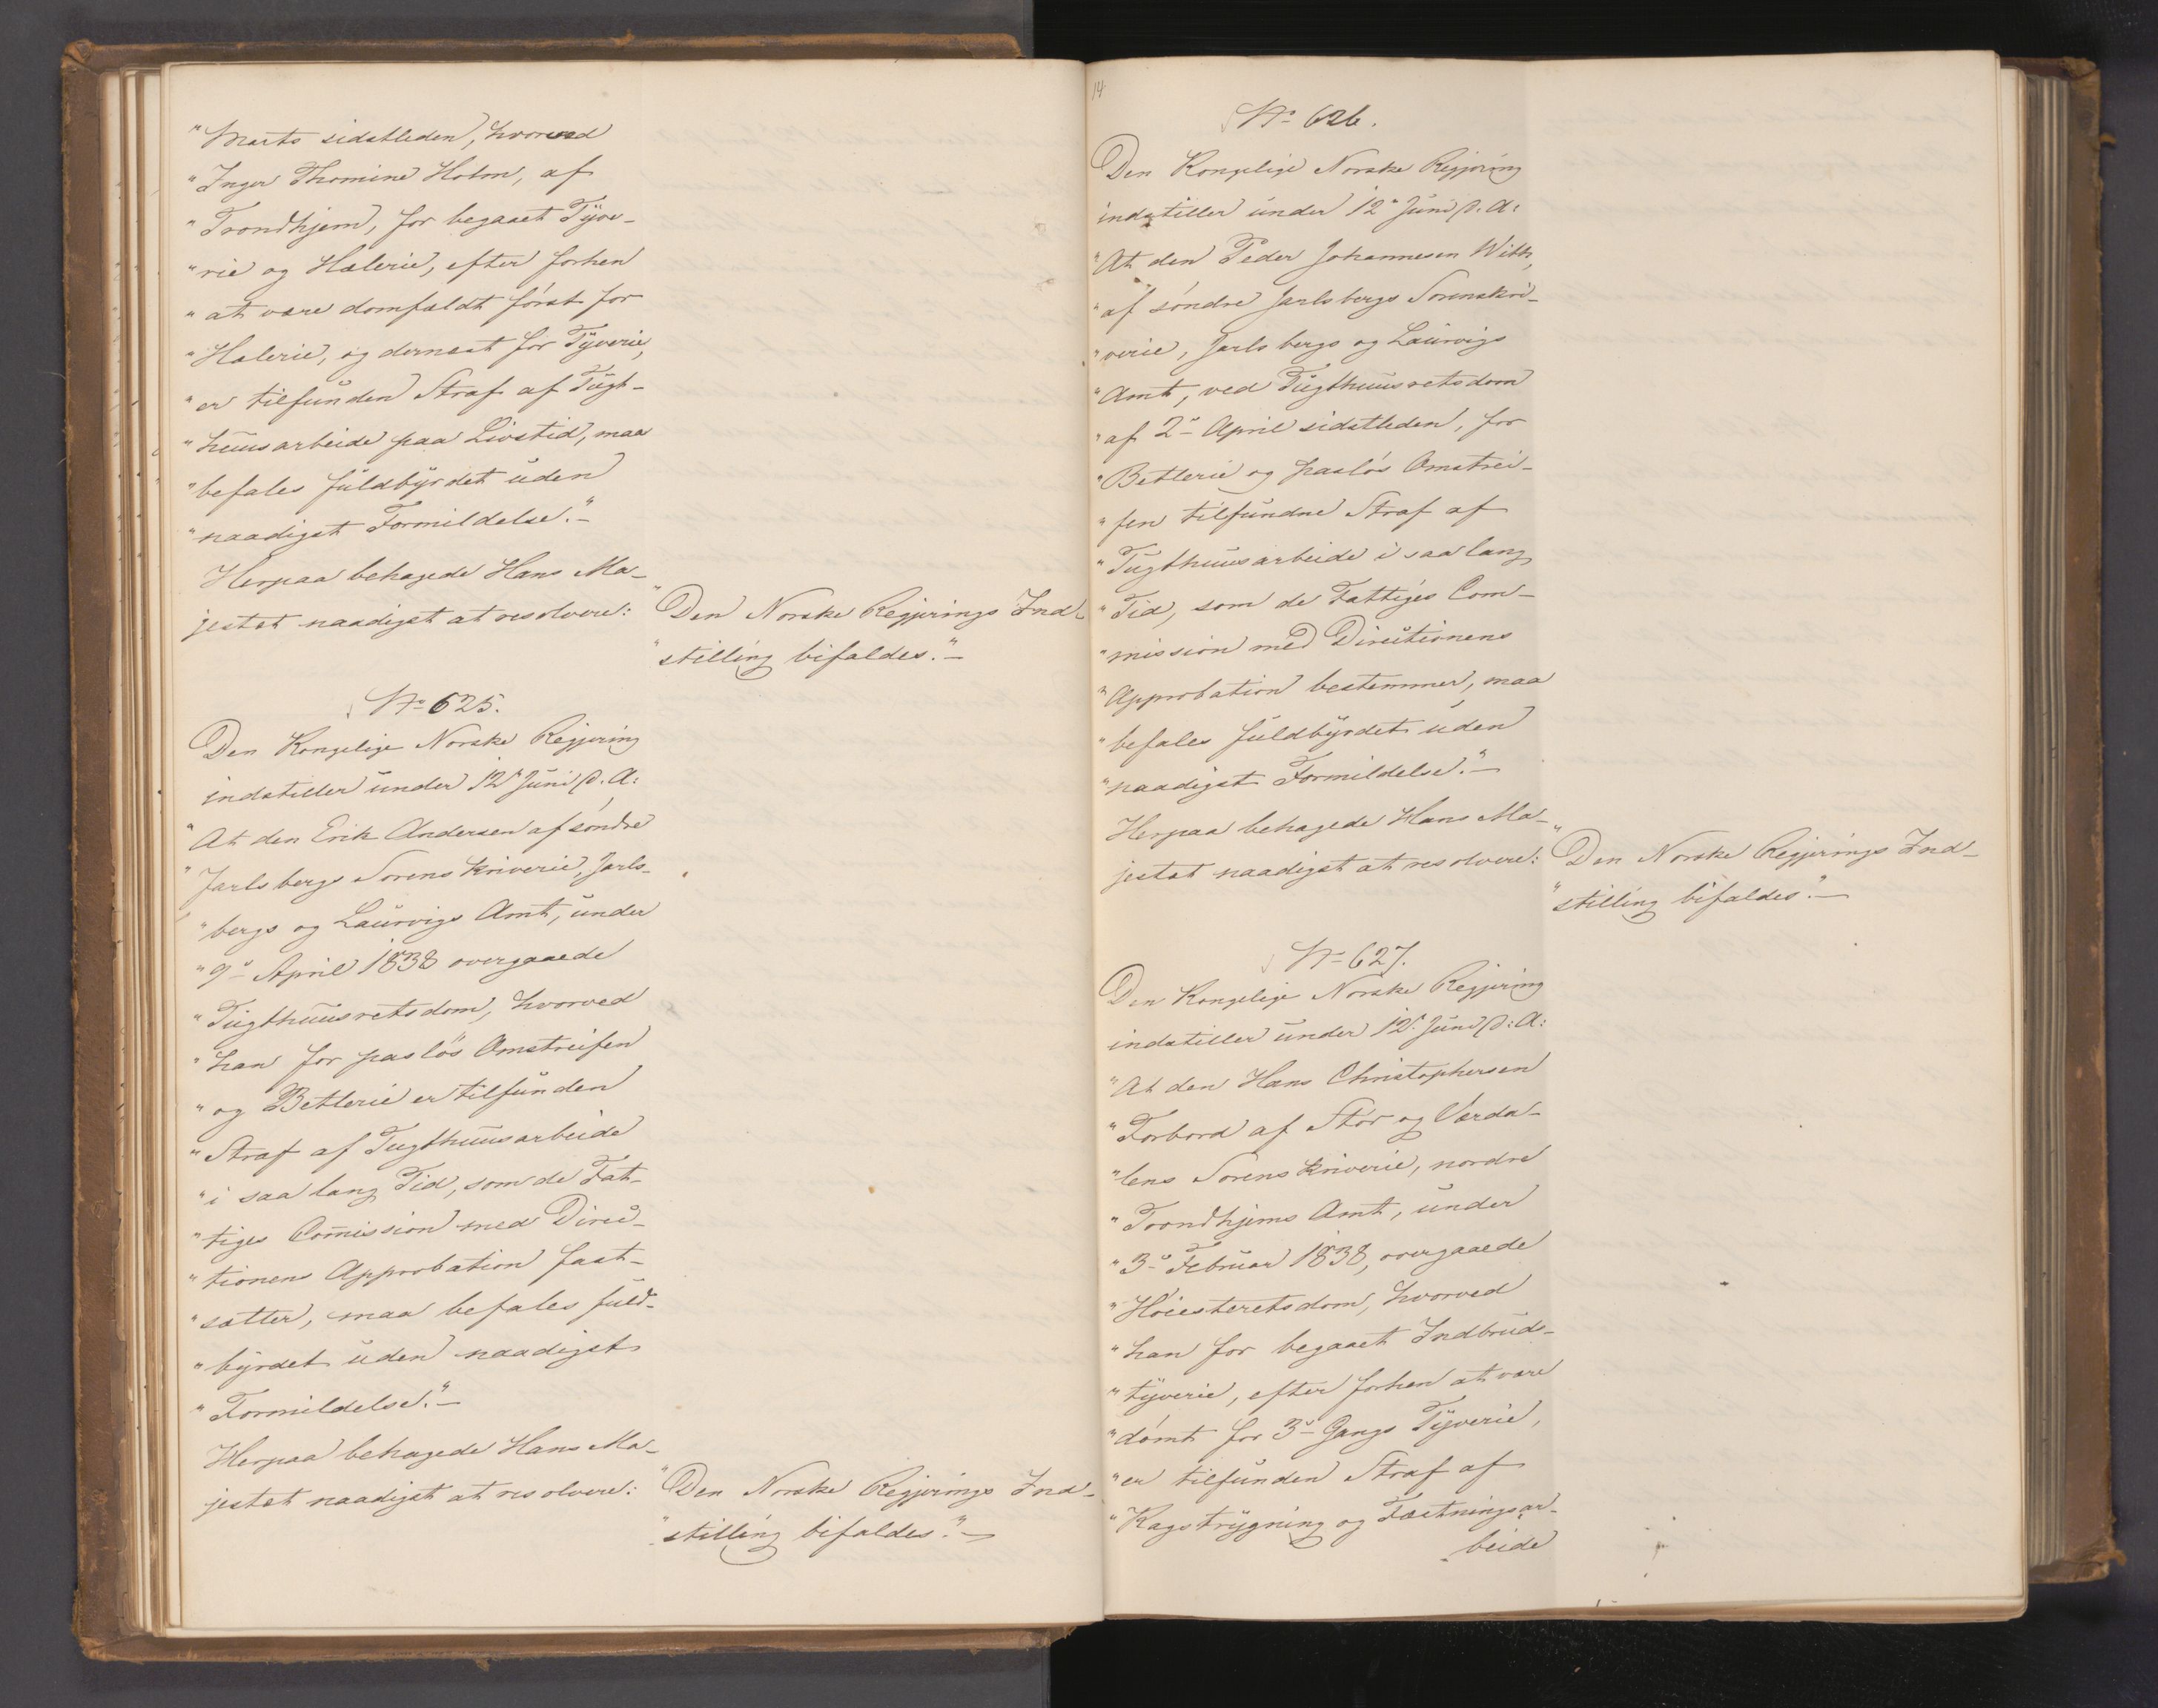 "Marts sidstleden, hvorved
"Inger Thomine Holm, af
"Trondhjem, for begaaet Tyve-
"rie og Hælerie, efter forhen
"at være domfældt først for
"Hælerie, og dernæst for Tyverie,
"er tilfunden Straf af Tugt-
"huusarbeide paa Livstid, maa
"befales fuldbyrdet uden
"naadigst Formildelse."-
Herpaa behagede Hans Ma-
jestæt naadigst at resolvere:
"Den Norske Regjerings Ind-
"stilling bifaldes."-
No 625.
Den Kongelige Norske Regjering
indstiller under 12te Juni d. A:
"At den Erik Andersen af søndre
"Jarlsbergs Sorenskriverie, Jarls-
"bergs og Laurvigs Amt, under
"9de April 1838 overgaaede
"Tugthuusretsdom, hvorved
"han for pasløs Omstreifen
"og Betlerie er tilfunden
"Straf af Tugthuusarbeide
"i saa lang Tid, som de Fat-
"tiges Com̄ission med Direc-
"tionens Approbation fast-
"sætter, maa befales fuld-
"byrdet uden naadigst
"Formildelse."-
Herpaa behagede Hans Ma-
jestæt naadigst at resolvere:
"Den Norske Regjerings Ind-
"stilling bifaldes."-
14
No 626.
Den Kongelige Norske Regjering
indstiller under 12te Juni d. A:
"At den Peder Johannesen With,
"af søndre Jarlsbergs Sorenskri-
"verie, Jarlsbergs og Laurvigs
"Amt, ved Tugthuusretsdom
"af 2den April sidstleden, for
"Betlerie og pasløs Omstrei-
"fen tilfundne Straf af
"Tugthuusarbeide i saa lang
"Tid, som de Fattiges Com-
"mission med Directionens
"Approbation bestemmer, maa
"befales fuldbyrdet uden
"naadigst Formildelse."-
Herpaa behagede Hans Ma-
jestæt naadigst at resolvere:
"Den Norske Regjerings Ind-
"stilling bifaldes."-
No 627.
Den Kongelige Norske Regjering
indstiller under 12te Juni d: A:
"At den Hans Christophersen
"Forbord af Stør og Værda-
"lens Sorenskriverie, nordre
"Trondhjems Amt, under
"3die Februar 1838, overgaaede
"Høiesteretsdom, hvorved
"han for begaaet Indbruds-
"tyverie, efter forhen at være
"dømt for 3die Gangs Tyverie,
"er tilfunden Straf af
"Kagstrygning og Fæstningsar-
"beide